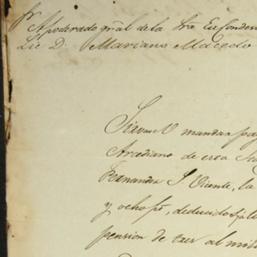 Apoderado gral de la Sra Ex Conde
Lic D. Mariano Macedo
Sirvase V mandar pag
Arcediano de esa Sa
Fernandez S. Vicente, la
y ocho ps, deducidos
pension de tres al mil